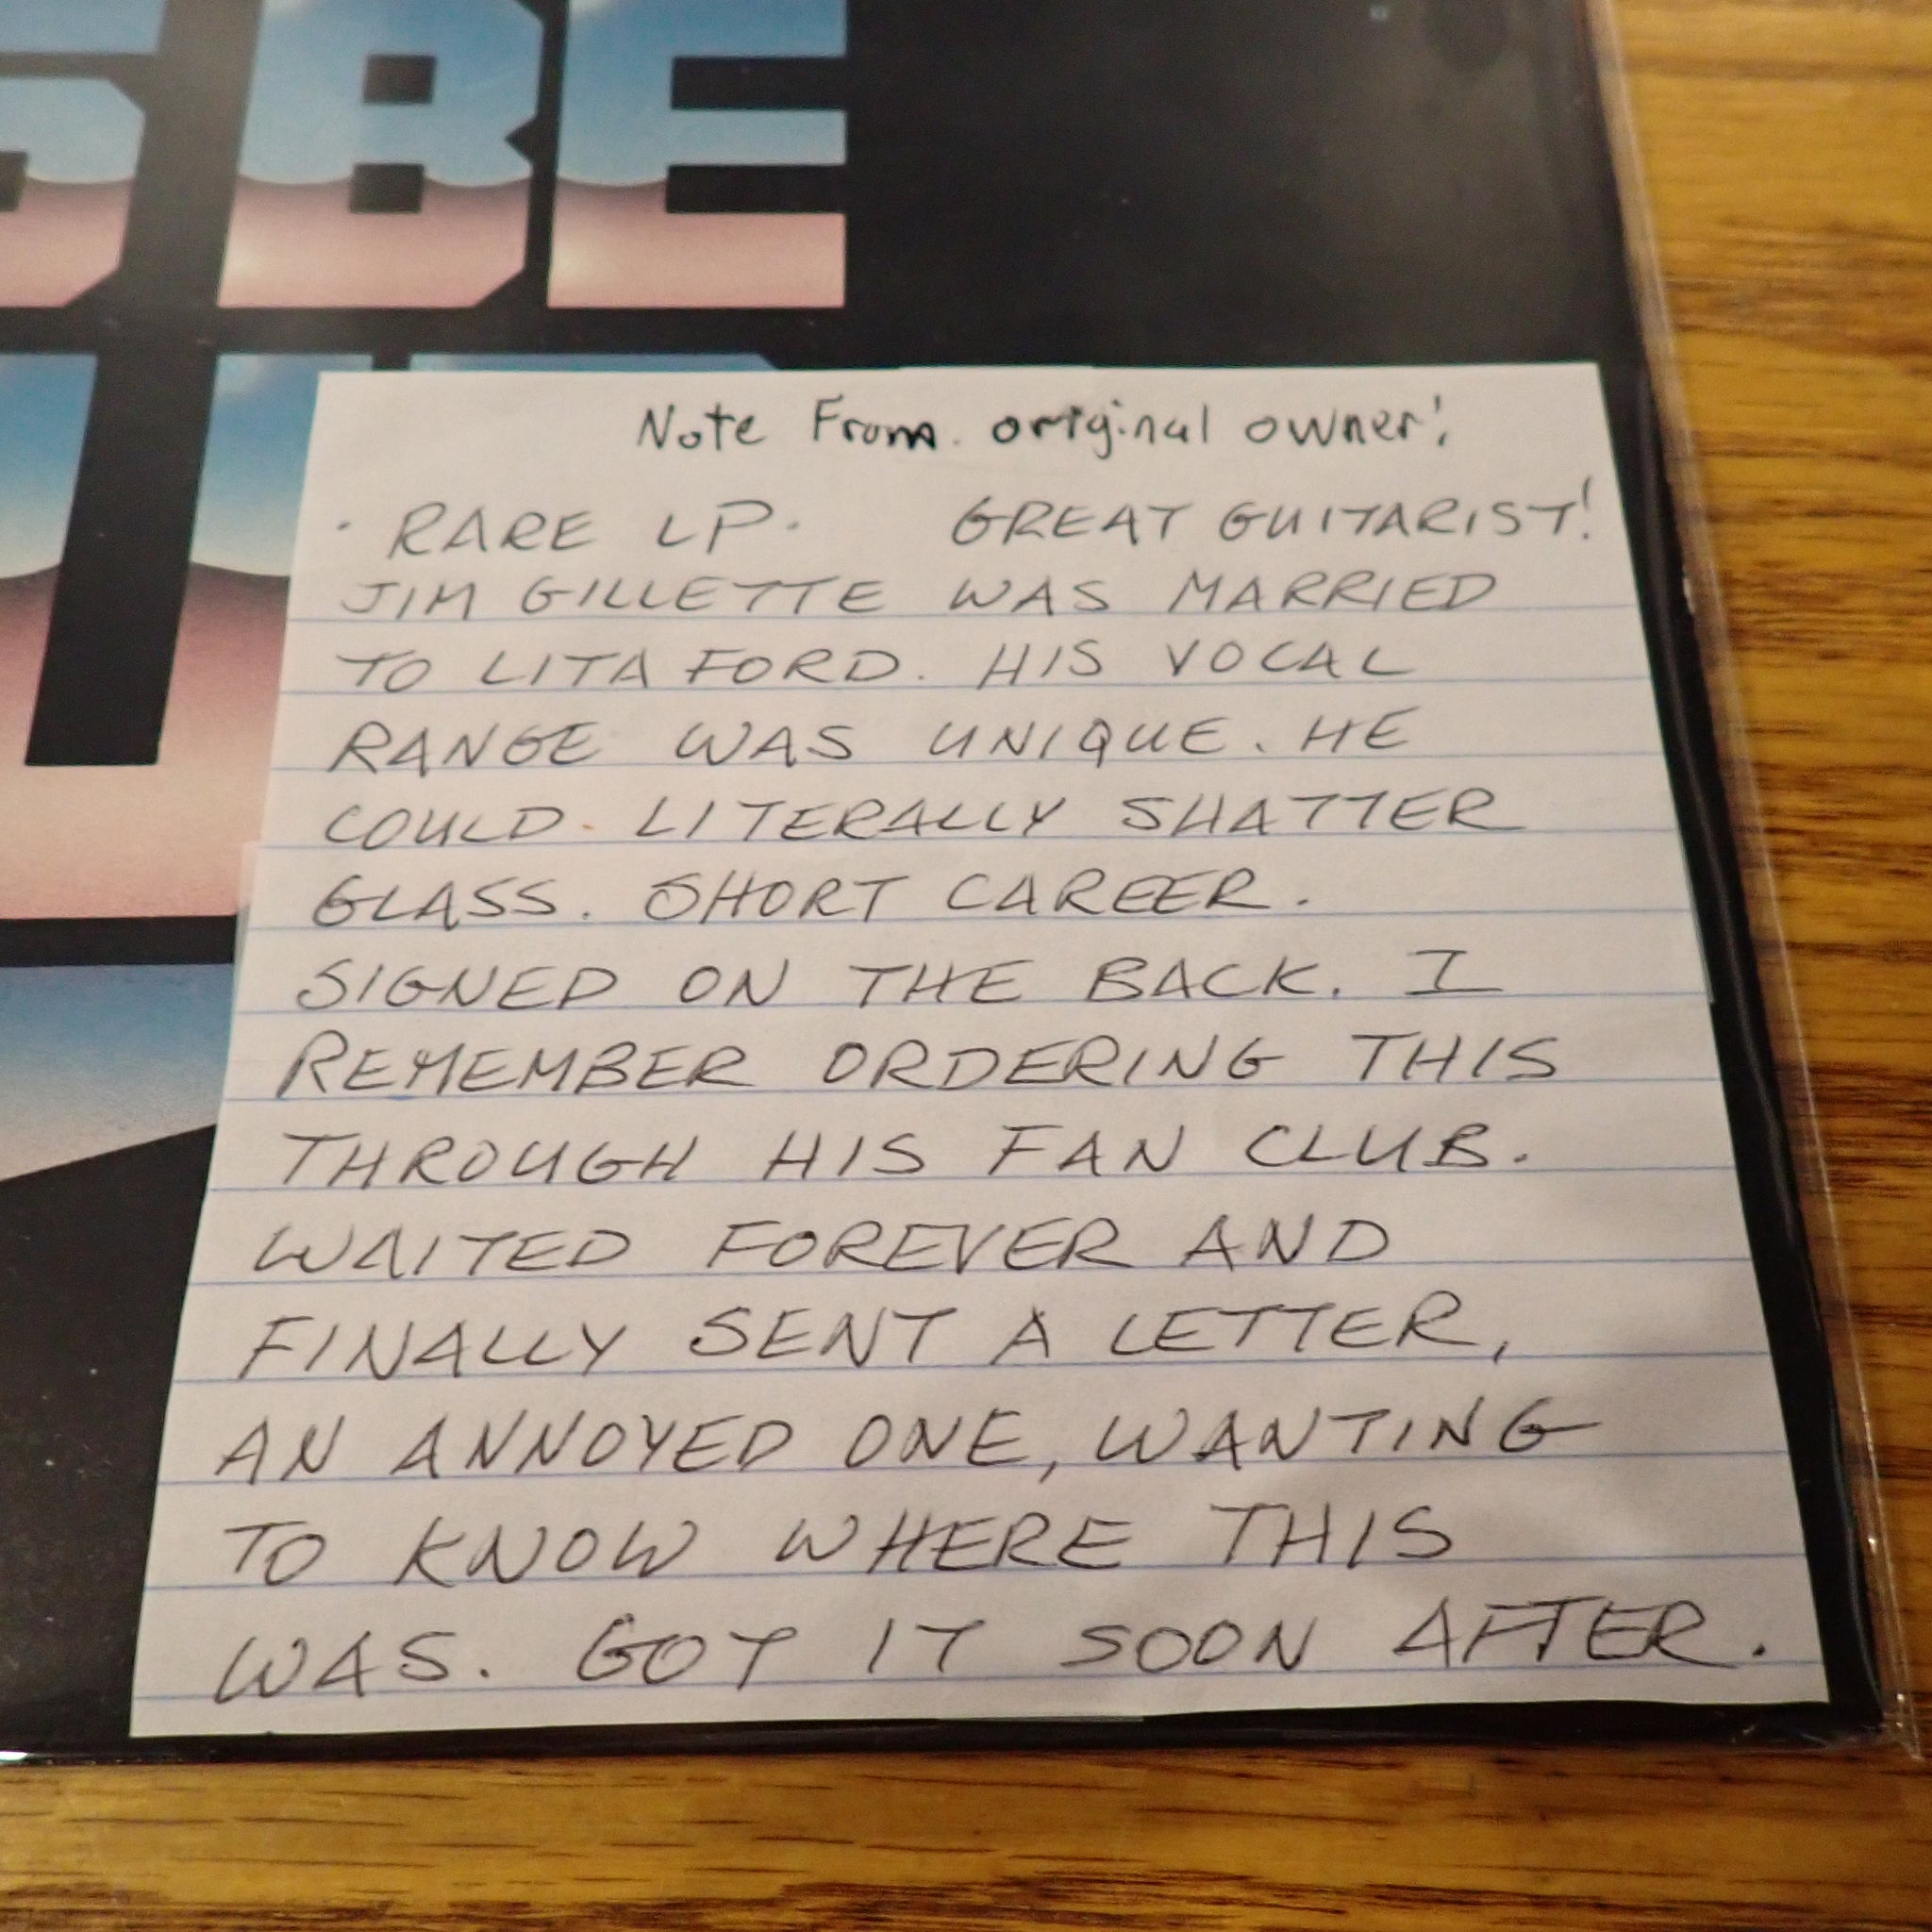 BE
Note From original owner!
· RARE LP. GREAT GUITARIST!
JIM GILLETTE WAS MARRIED
TO LITA FORD. HIS VOCAL
RANGE WAS UNIQUE. HE
COULD LITERALLY SHATTER
GLASS. SHORT CAREER.
SIGNED ON THE BACK. I
REMEMBER ORDERING THIS
THROUGH HIS FAN CLUB.
WAITED FOREVER AND
FINALLY SENT A LETTER,
AN ANNOYED ONE, WANTING
TO KNOW WHERE THIS
WAS. GOT IT SOON AFTER.